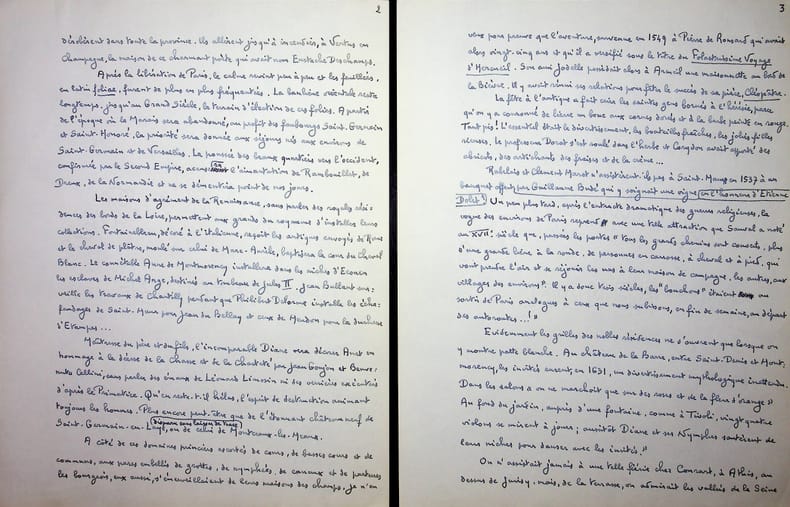 2
s'évoilèrent dans toute la province. Ils allèrent jusqu'à incendier, à Vertus en
Champagne, la maison de ce charmant poète qui avait nom Eustache Deschamps.
Après la libération de Paris, le calme revint peu à peu et les feuillées,
en latin foliae, furent de plus en plus fréquentées. La banlieue orientale resta
longtemps, jusqu'au Grand Siècle, le terrain d'élection de ces folies. A partir
de l'époque où le Marais sera abandonné, au profit des faubourgs Saint-Germain
et Saint-Honoré, la priorité sera donnée aux séjours sis aux environs de
Saint-Germain et de Versailles. La poussée des beaux quartiers vers l'occident,
confirmée par le Second Empire, accrut l'aimantation de Rambouillet, de
Dreux, de la Normandie et ne se démentira point de nos jours.
Les maisons d'agrément de la Renaissance, sans parler des royales rési-
dences des bords de la Loire, permettront aux grands du royaume d'installer leurs
collections. Fontainebleau, décoré à l'italienne, reçoit les antiques envoyés de Rome
et le cheval de plâtre, moulé sur celui de Marc-Aurèle, baptisera la cour du Cheval
Blanc. Le connétable Anne de Montmorency installera dans les niches d'Ecouen
les esclaves de Michel Ange, destinés au tombeau de Jules II. Jean Bullant sur-
veille les travaux de Chantilly pendant que Philibert Delorme installe les écha-
faudages de Saint-Maur pour Jean du Bellay et ceux de Meudon pour la duchesse
d'Etampes...
Maîtresse du père et du fils, l'incomparable Diane verra décorer Anet en
hommage à la déesse de la Chasse et de la Chasteté par Jean Goujon et Benve-
nuto Cellini, sans parler des émaux de Léonard Limosin ni des verrières exécutées
d'après le Primatice. Qu'en reste-t-il hélas, l'esprit de destruction animant
toujours les hommes. Plus encore peut-être que de l'étonnant château neuf de
disparu sans laisser de traces
Saint-Germain-en-Laye, ou de celui de Montceaux-les-Meaux.
A côté de ces domaines princiers escortés de cours, de basses cours et de
communs, aux parcs embellis de grottes, de nymphées, de canaux et de parterres
les bourgeois, eux aussi, s'enorgueillaient de leurs maisons des champs, je n'en
3
veux pour preuve que l'aventure, survenue en 1549 à Pierre de Ronsard qui avait
alors vingt-cinq ans et qu'il a versifié sous le titre du Folastrissime Voyage
d'Hercueil. Son ami Jodelle possédait alors à Arcueil une maisonnette au bord de
la Bièvre. Il y avait réuni ses relations pour fêter le succès de sa pièce, Cléopâtre.
La fête à l'antique a fait crier les saintes gens bornés à l'hérésie, parce
qu'on y a couronné de lierre un bouc aux cornes dorées et à la barbe peinte en rouge.
Tant pis! L'essentiel était le divertissement, les bouteilles fraîches, les jolies filles
rieuses. Le professeur Dorat s'est roulé dans l'herbe et Corydon avait apporté des
abricots, des artichauts des fraises et de la crème...
Rabelais et Clément Marot n'assistèrent-ils pas à Saint-Maur en 1537 à un
banquet offert par Guillaume Budé qui y soignait une vigne en l'honneur d'Etienne
Dolet? Un peu plus tard, après l'entracte dramatique des guerres religieuses, la
vogue des environs de Paris reprend avec une telle attraction que Sauval a noté
au XVIIe siècle que, passées les portes "tous les grands chemins sont couverts, plus
d'une grande lieue à la ronde, de personnes en carrosse, à cheval et à pied, qui
vont prendre l'air et se réjouir les uns à leur maison de campagne, les autres, aux
villages des environs". Il y a donc trois siècles, les "bouchons" étaient au
sortir de Paris analogues à ceux que nous subissons, en fin de semaine, au départ
des autoroutes...!
Evidemment les grilles des nobles résidences ne s'ouvrent que lorsque on
y montre patte blanche. Au château de la Barre, entre Saint-Denis et Mont-
morency, les invités eurent, en 1631, un divertissement mythologique inattendu.
Dans les salons "on ne marchoit que sur des roses et de la fleur d'orange"
Au fond du jardin, auprès d'une fontaine, comme à Tivoli, vingt quatre
violons se mirent à jouer; aussitôt Diane et ses Nymphes sautèrent de
leurs niches pour danser avec les invités."
On n'assistait jamais à une telle féérie chez Conrart, à Athis, au
dessus de Juvisy. mais, de la terrasse, on admirait les vallées de la Seine